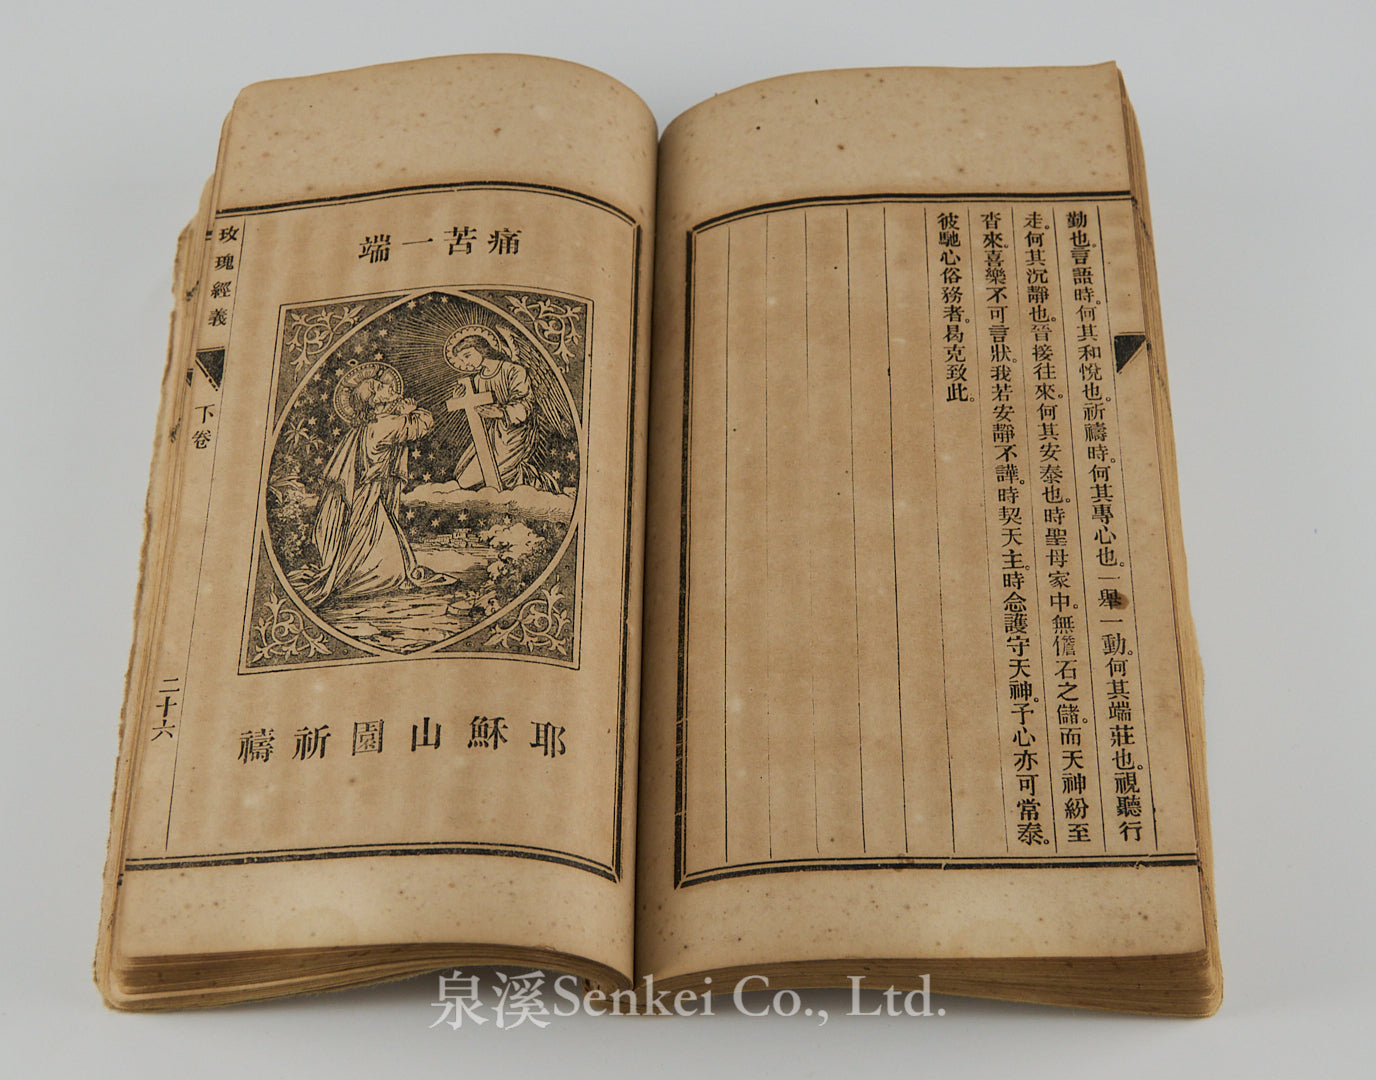 勤也。言語時。何其和悅也。祈禱時。何其專心也。一舉一動。何其端莊也。視聽行
走。何其沉靜也。晉接往來。何其安泰也。時聖母家中。無儋石之儲。而天神紛至
沓來。喜樂不可言狀。我若安靜不譁。時契天主。時念護守天神。予心亦可常泰。
彼馳心俗務者。曷克致此。
痛苦一端
耶穌山園祈禱
玫瑰經義
下卷
二十六
泉溪Senkei Co., Ltd.